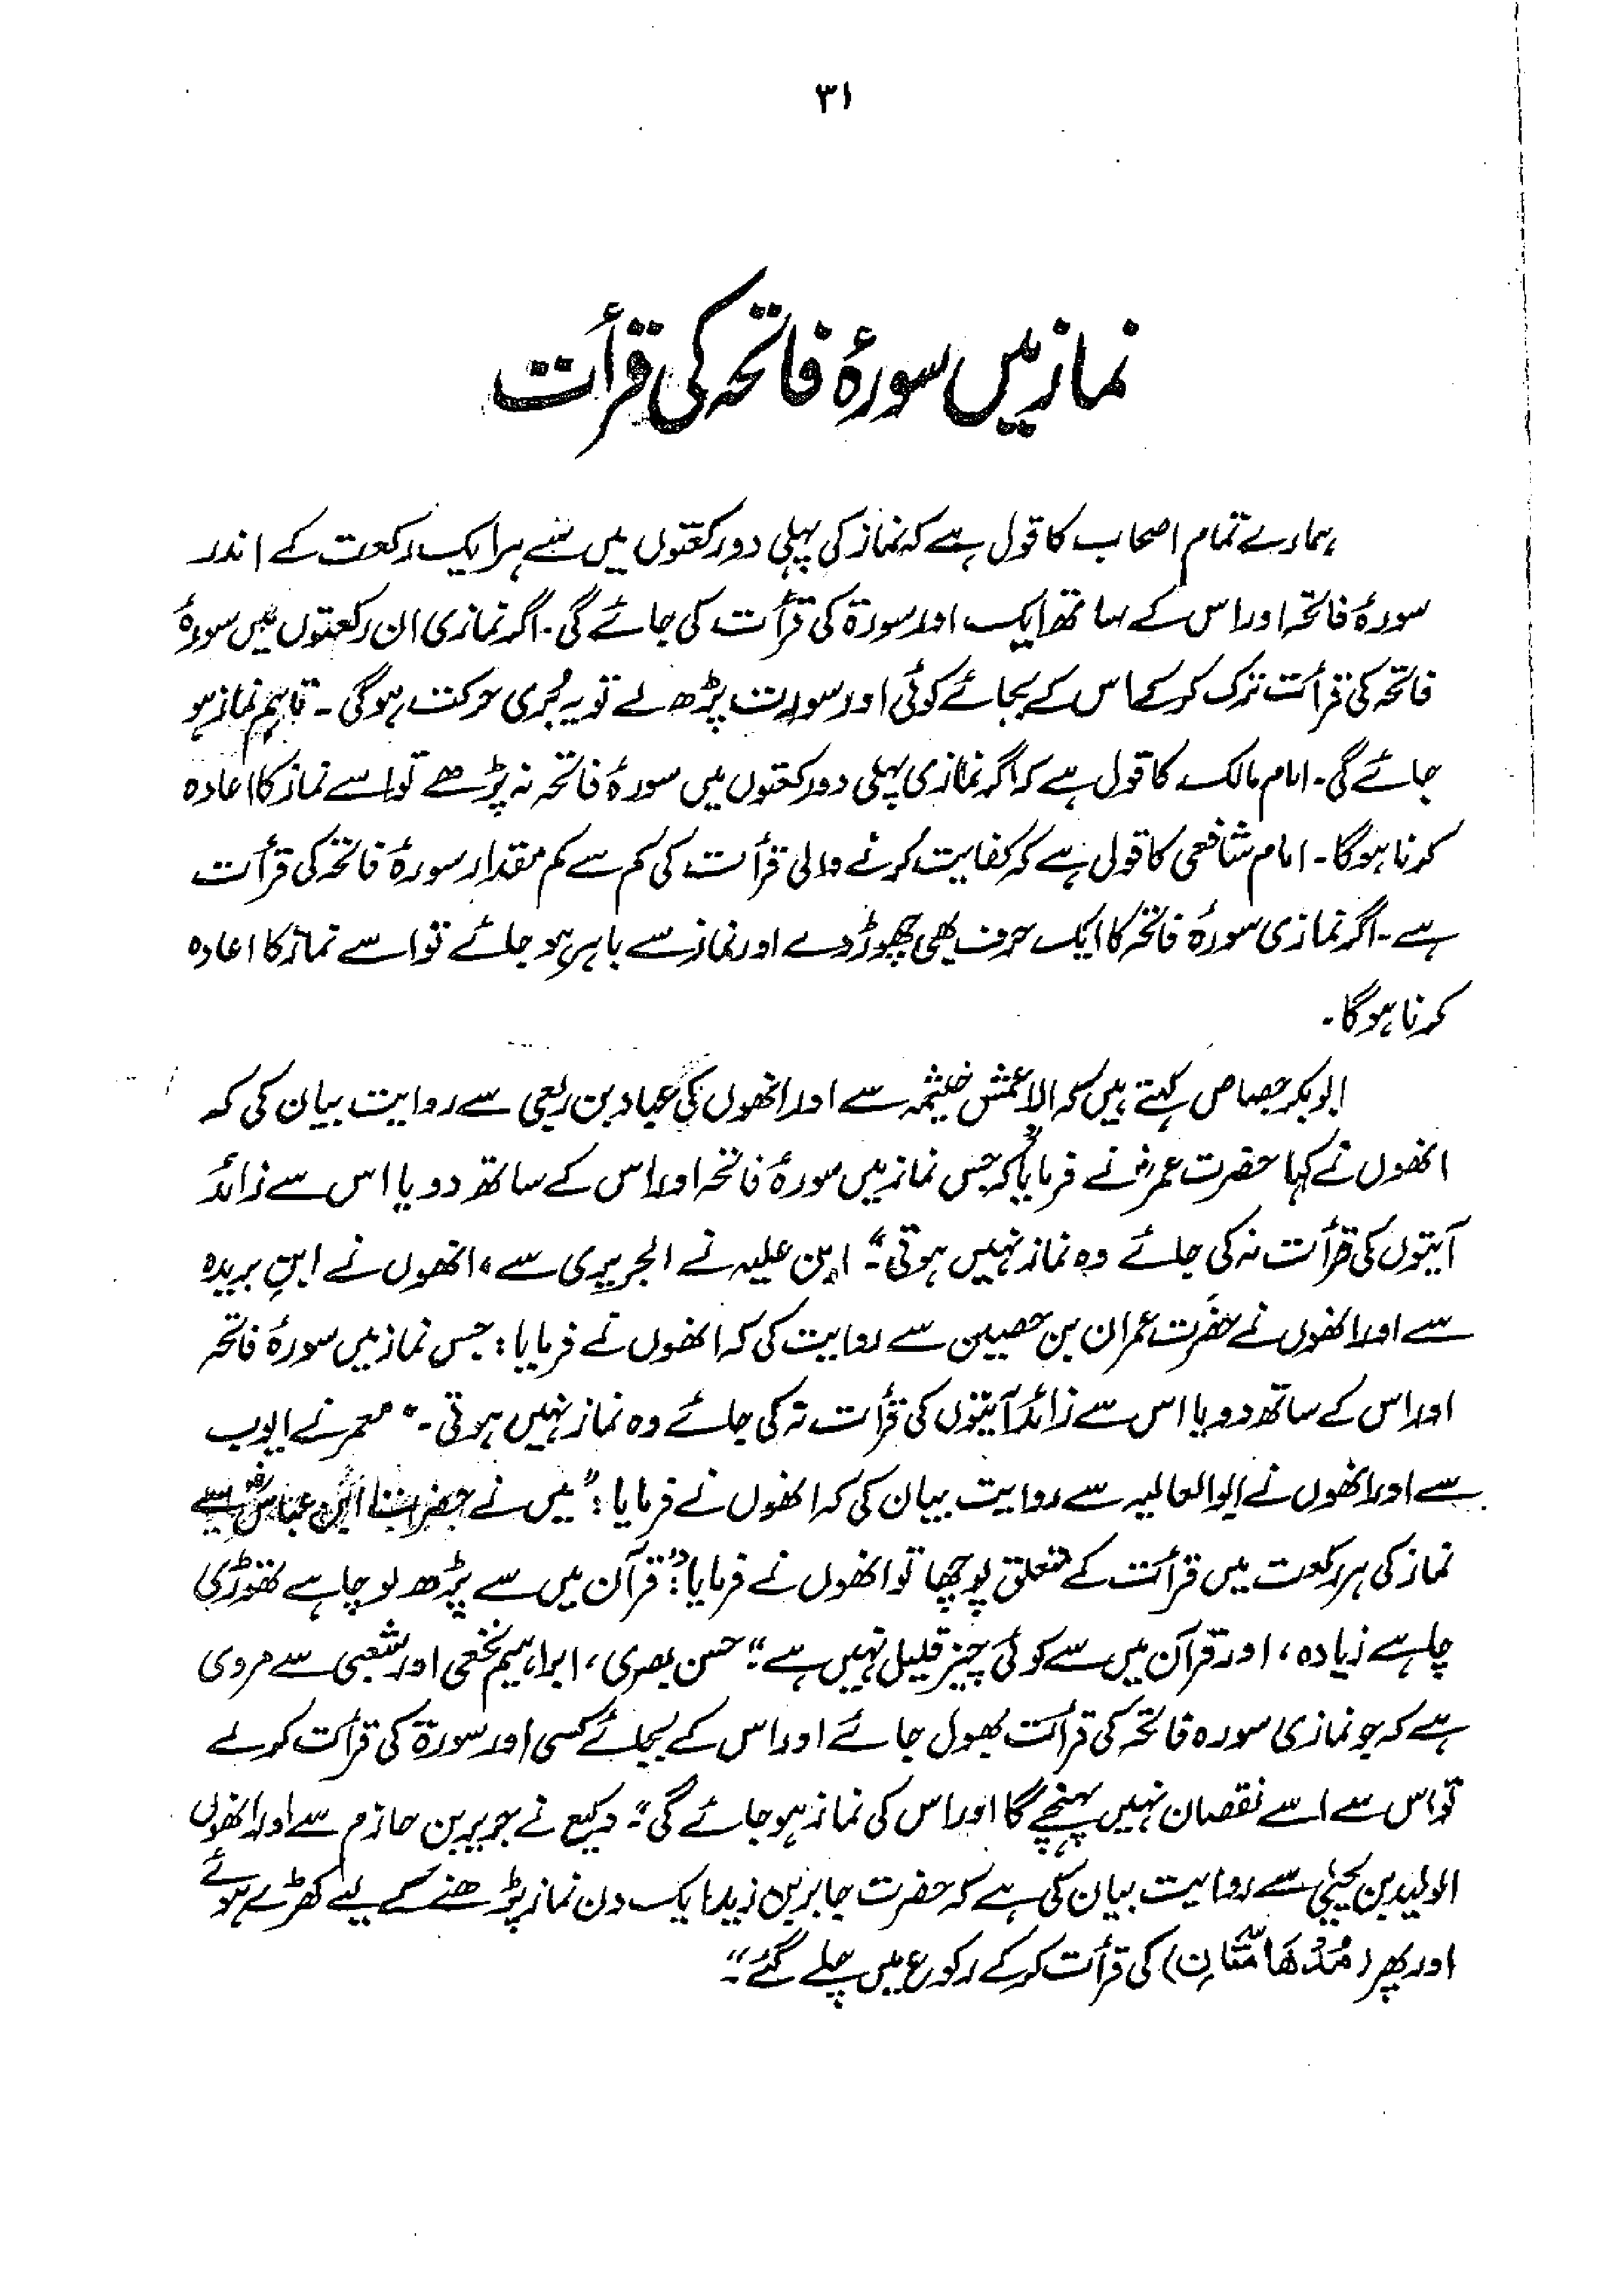 ۳۱
نماز میں سورۂ فاتحہ کی قرأت
ہمارے تمام اصحاب کا قول ہے کہ نماز کی پہلی دو رکعتوں میں سے ہر ایک رکعت کے اندر
سورۂ فاتحہ اور اس کے ساتھ ایک اور سورۃ کی قرأت کی جائے گی۔ اگر نمازی ان رکعتوں میں سورۂ
فاتحہ کی قرأت ترک کر کے اس کے بجائے کوئی اور سورت پڑھ لے تو یہ بُری حرکت ہوگی۔ تاہم نماز ہو
جائے گی۔ امام مالک کا قول ہے کہ اگر نمازی پہلی دو رکعتوں میں سورۂ فاتحہ نہ پڑھے تو اسے نماز کا اعادہ
کرنا ہوگا۔ امام شافعی کا قول ہے کہ کفایت کرنے والی قرأت کی کم سے کم مقدار سورۂ فاتحہ کی قرأت
ہے۔ اگر نمازی سورۂ فاتحہ کا ایک حرف بھی چھوڑ دے اور نماز سے باہر ہو جائے تو اسے نماز کا اعادہ
کرنا ہوگا۔
ابوبکر جصاص کہتے ہیں کہ الاعمش خیثمہ سے اور انھوں کی عباد بن ربعی سے روایت بیان کی کہ
انھوں نے کہا حضرت عمرؓ نے فرمایا کہ جس نماز میں سورۂ فاتحہ اور اس کے ساتھ دو یا اس سے زائد
آیتوں کی قرأت نہ کی جائے وہ نماز نہیں ہوتی“۔ ابن علیہ نے الجریری سے، انھوں نے ابنِ بریدہ
سے اور انھوں نے حضرت عمران بن حصین سے روایت کی کہ انھوں نے فرمایا: جس نماز میں سورۂ فاتحہ
اور اس کے ساتھ دو یا اس سے زائد آیتوں کی قرأت نہ کی جائے وہ نماز نہیں ہوتی۔“ معمر نے ایوب
سے اور انھوں نے ابوالعالیہ سے روایت بیان کی کہ انھوں نے فرمایا: ”میں نے حضرت ابن عباسؓ سے
نماز کی ہر رکعت میں قرأت کے متعلق پوچھا تو انھوں نے فرمایا: ”قرآن میں سے پڑھ لو چاہے تھوڑی
چاہے زیادہ، اور قرآن میں سے کوئی چیز قلیل نہیں ہے“۔ حسن بصری، ابراہیم نخعی اور شعبی سے مروی
ہے کہ جو نمازی سورہ فاتحہ کی قرأت بھول جائے اور اس کے بجائے کسی اور سورۃ کی قرأت کر لے
تو اس سے اسے نقصان نہیں پہنچے گا اور اس کی نماز ہو جائے گی“۔ وکیع نے جریر بن حازم سے اور انھوں
الولید بن یحییٰ سے روایت بیان کی ہے کہ حضرت جابر بن زید ایک دن نماز پڑھنے کے لیے کھڑے ہوئے
اور پھر (مُدْهَامَّتَانِ) کی قرأت کر کے رکوع میں چلے گئے“۔